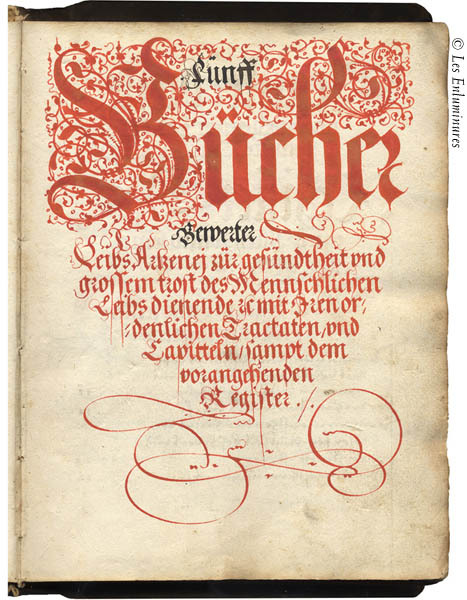 Fünff
Bücher
Bewerter
Leibs Artzenej zür gesündtheit vnd
grossem trost des Mennschlichen
Leibs dienende ꝛc mit Jren or/
/denlichen Tractaten, vnd
Capitteln / sampt dem
vorangehenden
Register ./.
© Les Enluminures